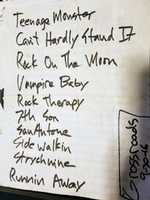 Teenage Monster
Can't Hardly Stand It
Rock On The Moon
Vampire Baby
Rock Therapy
7th Son
San Antone
Side Walkin
Strychnine
Runnin Away
Crossroads